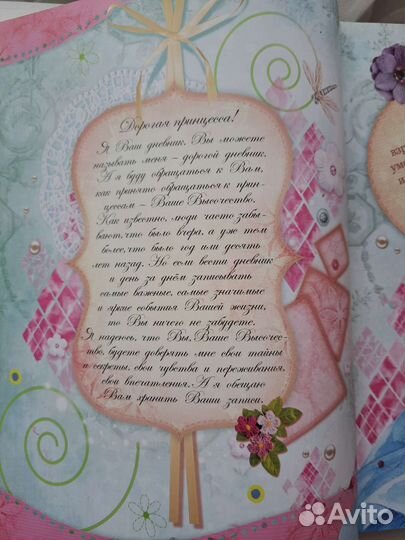 Дорогая принцесса!
Я Ваш дневник. Вы можете
называть меня – дорогой дневник.
А я буду обращаться к Вам,
как принято обращаться к прин-
цессам – Ваше Высочество.
Как известно, люди часто забы-
вают, что было вчера, а уж тем
более, что было год или десять
лет назад. Но если вести дневник
и день за днём записывать
самые важные, самые значимые
и яркие события Вашей жизни,
то Вы ничего не забудете.
Я надеюсь, что Вы, Ваше Высочес-
тво, будете доверять мне свои тайны
и секреты, свои чувства и переживания,
свои впечатления. А я обещаю
Вам хранить Ваши записи.
Avito